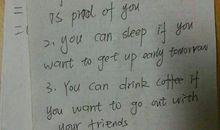 is proud of you
2. you can sleep if you
want to get up early tomorrow
3. You can drink coffee if
you want to go out with
your friends